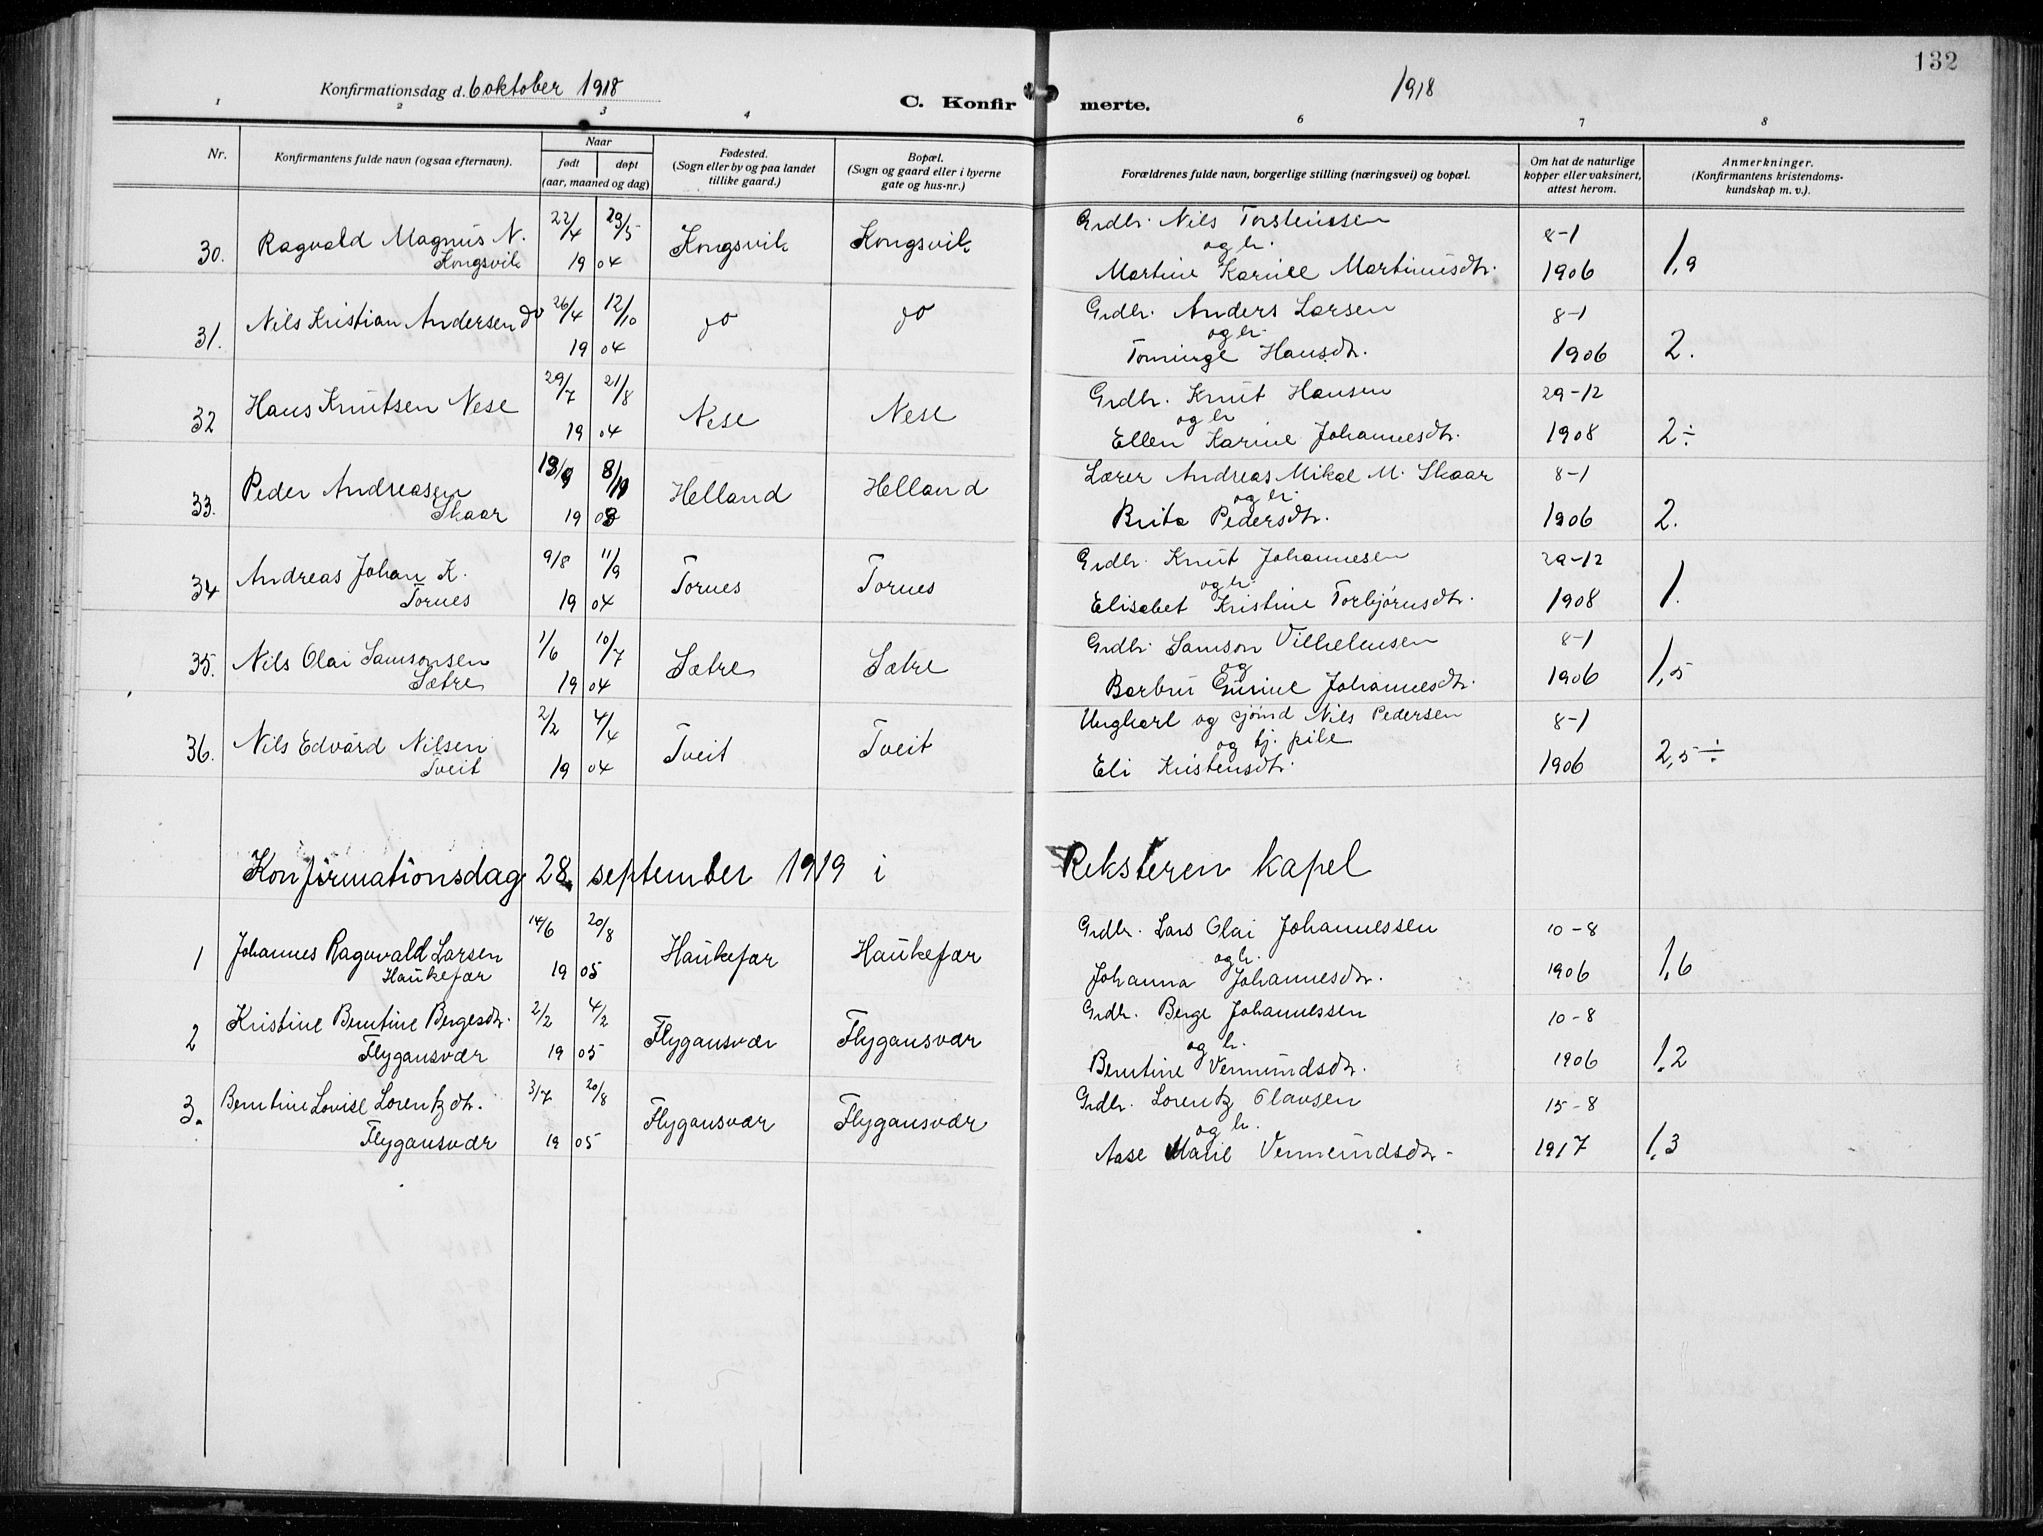 132
Konfirmationsdag d. 6 oktober 1918
1918
C. Konfirmerte.
1 2 3 4 6 7 8
Nr.
Konfirmantens fulde navn (ogsaa efternavn).
Naar
født døpt
(aar, maaned og dag)
Fødested.
(Sogn eller by og paa landet
tillike gaard.)
Bopæl.
(Sogn og gaard eller i byerne
gate og hus-nr.)
Forældrenes fulde navn, borgerlige stilling (næringsvei) og bopæl.
Om hat de naturlige
kopper eller vaksinert,
attest herom.
Anmerkninger.
(Konfirmantens kristendoms-
kundskap m. v.).
22/4 29/5 Grdbr. Nils Torsteinssen 8-1
30. Ragvald Magnus N. Kongsvik Kongsvik og h. 1,9
Kongsvik 19 04 Martine Karine Martinusdtr. 1906
26/4 12/10 Grdbr. Anders Larsen 8-1
31. Nils Kristian Andersen do do do og h.
19 04 Hansdtr. 1906 2.
29/7 21/8 Grdbr. Knut Hansen 29-12
32 Hans Knutsen Nese Nese Nese og h
19 04 Ellen Karine Johannesdtr. 1908 2÷
8/11 Lærer Andreas Mikal M. Skaar 8-1
33. Peder Andreasen Helland Helland og h.
Skaar 19 03 Brita Pedersdtr. 1906 2.
9/8 11/9 Grdbr. Knut Johannesen 29-12
34 Andreas Johan K. Tornes Tornes og h.
Tornes 19 04 Elisabet Kristine Torbjørnsdtr. 1908 1.
1/6 10/7 Grdbr. Samson Vilhelmsen 8-1
35. Nils Olai Samsonsen Sætre Sætre og
Sætre 19 04 Barbru Gurine Johannesdtr. 1906 1,5
2/2 4/4 Ungkarl og sjømd Nils Pedersen 8-1
36. Nils Edvard Nilsen Tveit Tveit og tj. pike 2,5÷
Tveit 19 04 Eli Kristensdtr. 1906
Konfirmationsdag 28. september 1919 i Reksteren kapel
14/6 20/8 Grdbr. Lars Olai Johannessen 10-8
1 Johannes Ragnvald Larsen Haukefær Haukefær og h. 1,6
Haukefær 19 05 Johanna Johannesdtr. 1906
2/2 4/2 Grdbr. Berge Johannessen 10-8
2 Kristine Berntine Bergesdtr. Flygansvær Flygansvær og h.
Flygansvær 19 05 Berntine Vermundsdtr. 1906 1.2
3/7 20/8 Grdbr. Lorentz Olavsen 15-8
3. Berntine Lovise Lorentzdtr. Flygansvær Flygansvær og h.
Flygansvær 19 05 Aase Marie Vermundsdtr. 1917 1.3